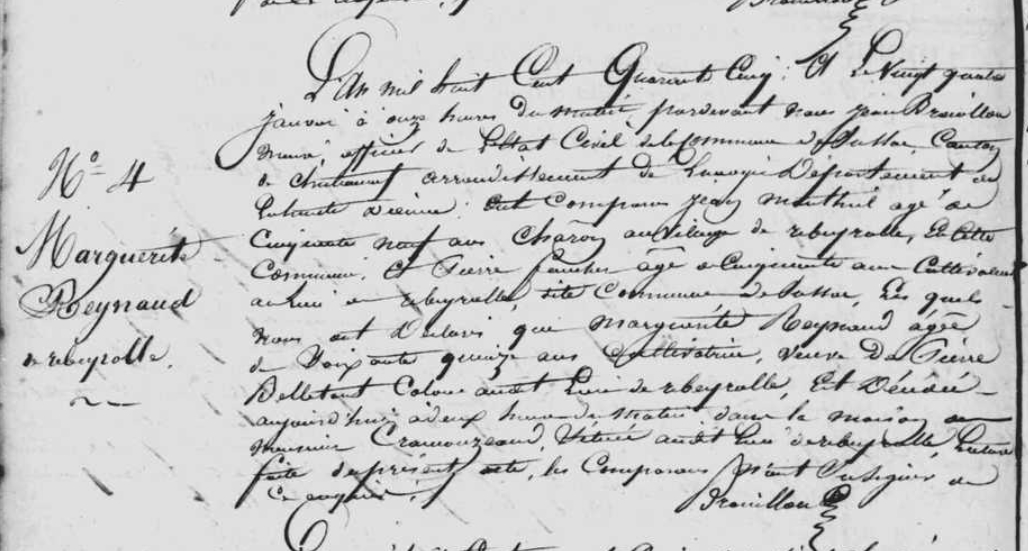 Brouillon
L'An mil huit Cent Quarante Cinq. Et Le Vingt quatre
janvier à onze heures du matin, pardevant nous jean Brouillon
maire, officier de L'Etat Civil de la Commune de Jussac, Canton
de arrondissement de Limoges Département de
La haute Vienne. ont Comparus jean age de
Cinquante neuf ans Charon au Village de ribeyrolle, En Cette
Commune, Et Pierre faucher âgé de Cinquante ans Cultivateur
au Lieu de ribeyrolle, dite Commune de Jussac, Les quels
nous ont Déclaré que marguerite Reynaud âgée
de Soixante quinze ans Cultivatrice, veuve De Pierre
Belletant Colon audt Lieu de ribeyrolle, Est Décédée
aujourd'hui à deux heures du matin dans la maison de
monsieur Située audt Lieu de ribeyrolle, Lecture
faite du présent acte, les Comparans n'ont Su Signer de
Ce enquis.
Brouillon
N° 4
Marguerite
Reynaud
de ribeyrolle.